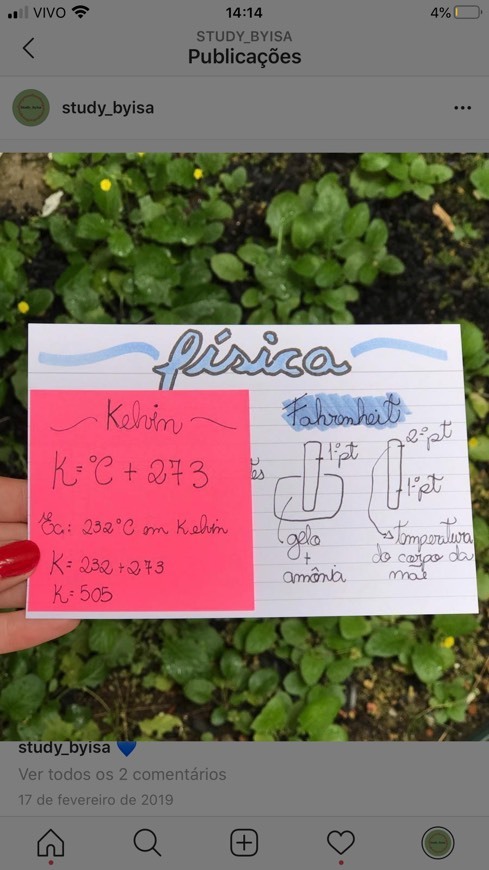 VIVO 14:14 4%
STUDY_BYISA
Publicações
study_byisa
física
Kelvin
K=°C + 273
Ex: 232°C em Kelvin
K= 232+273
K= 505
Fahrenheit
1º pt
gelo
+
amônia
2º pt
1º pt
temperatura
do corpo da
mãe
study_byisa 💙
Ver todos os 2 comentários
17 de fevereiro de 2019